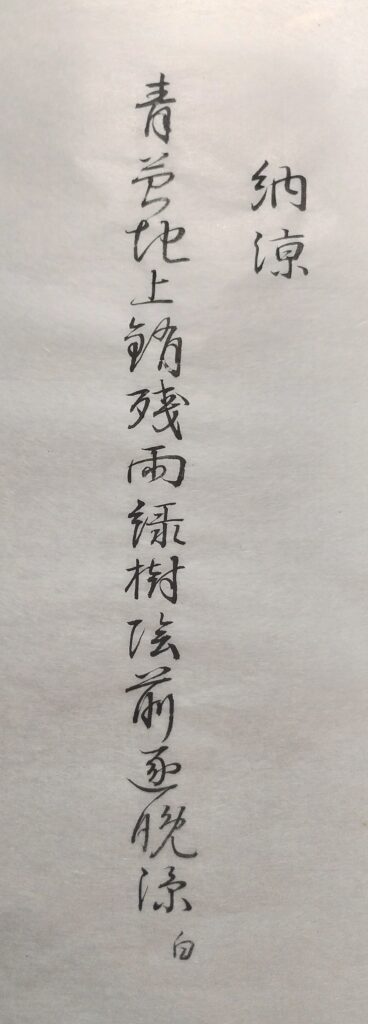 納涼
青苔地上銷残雨緑樹陰前逐晩涼
白